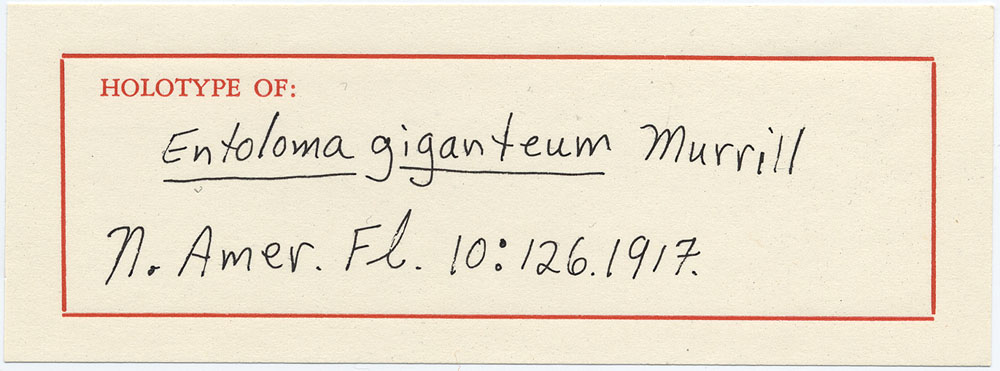 HOLOTYPE OF:
Entoloma giganteum Murrill
N. Amer. Fl. 10:126.1917.